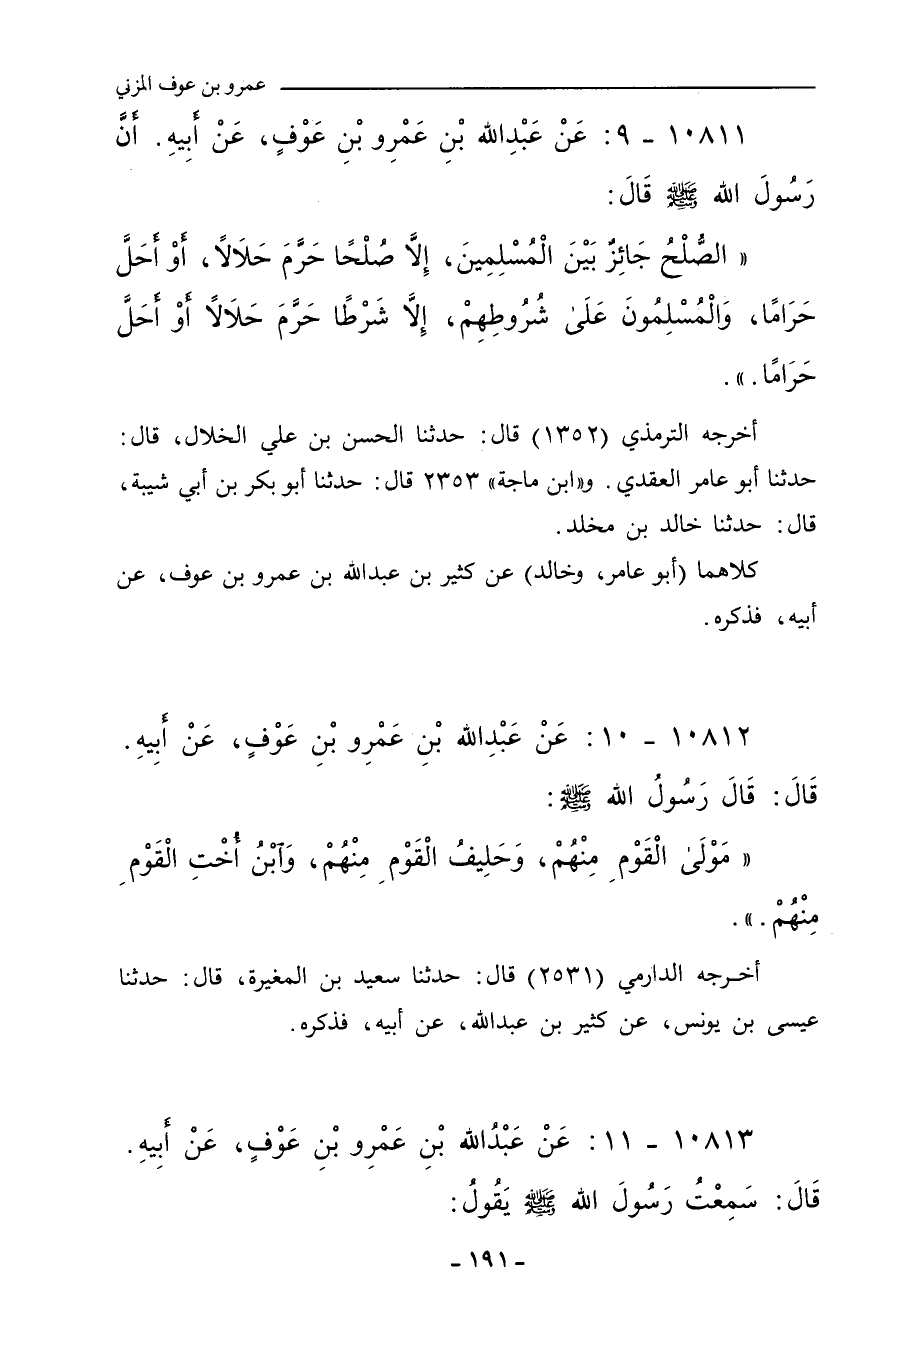 عمرو بن عوف المزني
١٠٨١١ - ٩: عَنْ عَبْدِالله بْنِ عَمْرِو بْنِ عَوْفٍ، عَنْ أَبِيهِ. أَنَّ
رَسُولَ الله ﷺ قَالَ:
« الصُّلْحُ جَائِزٌ بَيْنَ الْمُسْلِمِينَ، إِلَّا صُلْحًا حَرَّمَ حَلَالًا، أَوْ أَحَلَّ
حَرَامًا، وَالْمُسْلِمُونَ عَلَىٰ شُرُوطِهِمْ، إِلَّا شَرْطًا حَرَّمَ حَلَالًا أَوْ أَحَلَّ
حَرَامًا.».
أخرجه الترمذي (١٣٥٢) قال: حدثنا الحسن بن علي الخلال، قال:
حدثنا أبو عامر العقدي. و«ابن ماجة» ٢٣٥٣ قال: حدثنا أبو بكر بن أبي شيبة،
قال: حدثنا خالد بن مخلد.
كلاهما (أبو عامر، وخالد) عن كثير بن عبدالله بن عمرو بن عوف، عن
أبيه، فذكره.
١٠٨١٢ - ١٠: عَنْ عَبْدِالله بْنِ عَمْرِو بْنِ عَوْفٍ، عَنْ أَبِيهِ.
قَالَ: قَالَ رَسُولُ الله ﷺ:
« مَوْلَىٰ الْقَوْمِ مِنْهُمْ، وَحَلِيفُ الْقَوْمِ مِنْهُمْ، وَٱبْنُ أُخْتِ الْقَوْمِ
مِنْهُمْ.».
أخرجه الدارمي (٢٥٣١) قال: حدثنا سعيد بن المغيرة، قال: حدثنا
عيسى بن يونس، عن كثير بن عبدالله، عن أبيه، فذكره.
١٠٨١٣ - ١١: عَنْ عَبْدُالله بْنِ عَمْرِو بْنِ عَوْفٍ، عَنْ أَبِيهِ.
قَالَ: سَمِعْتُ رَسُولَ الله ﷺ يَقُولُ:
- ١٩١ -